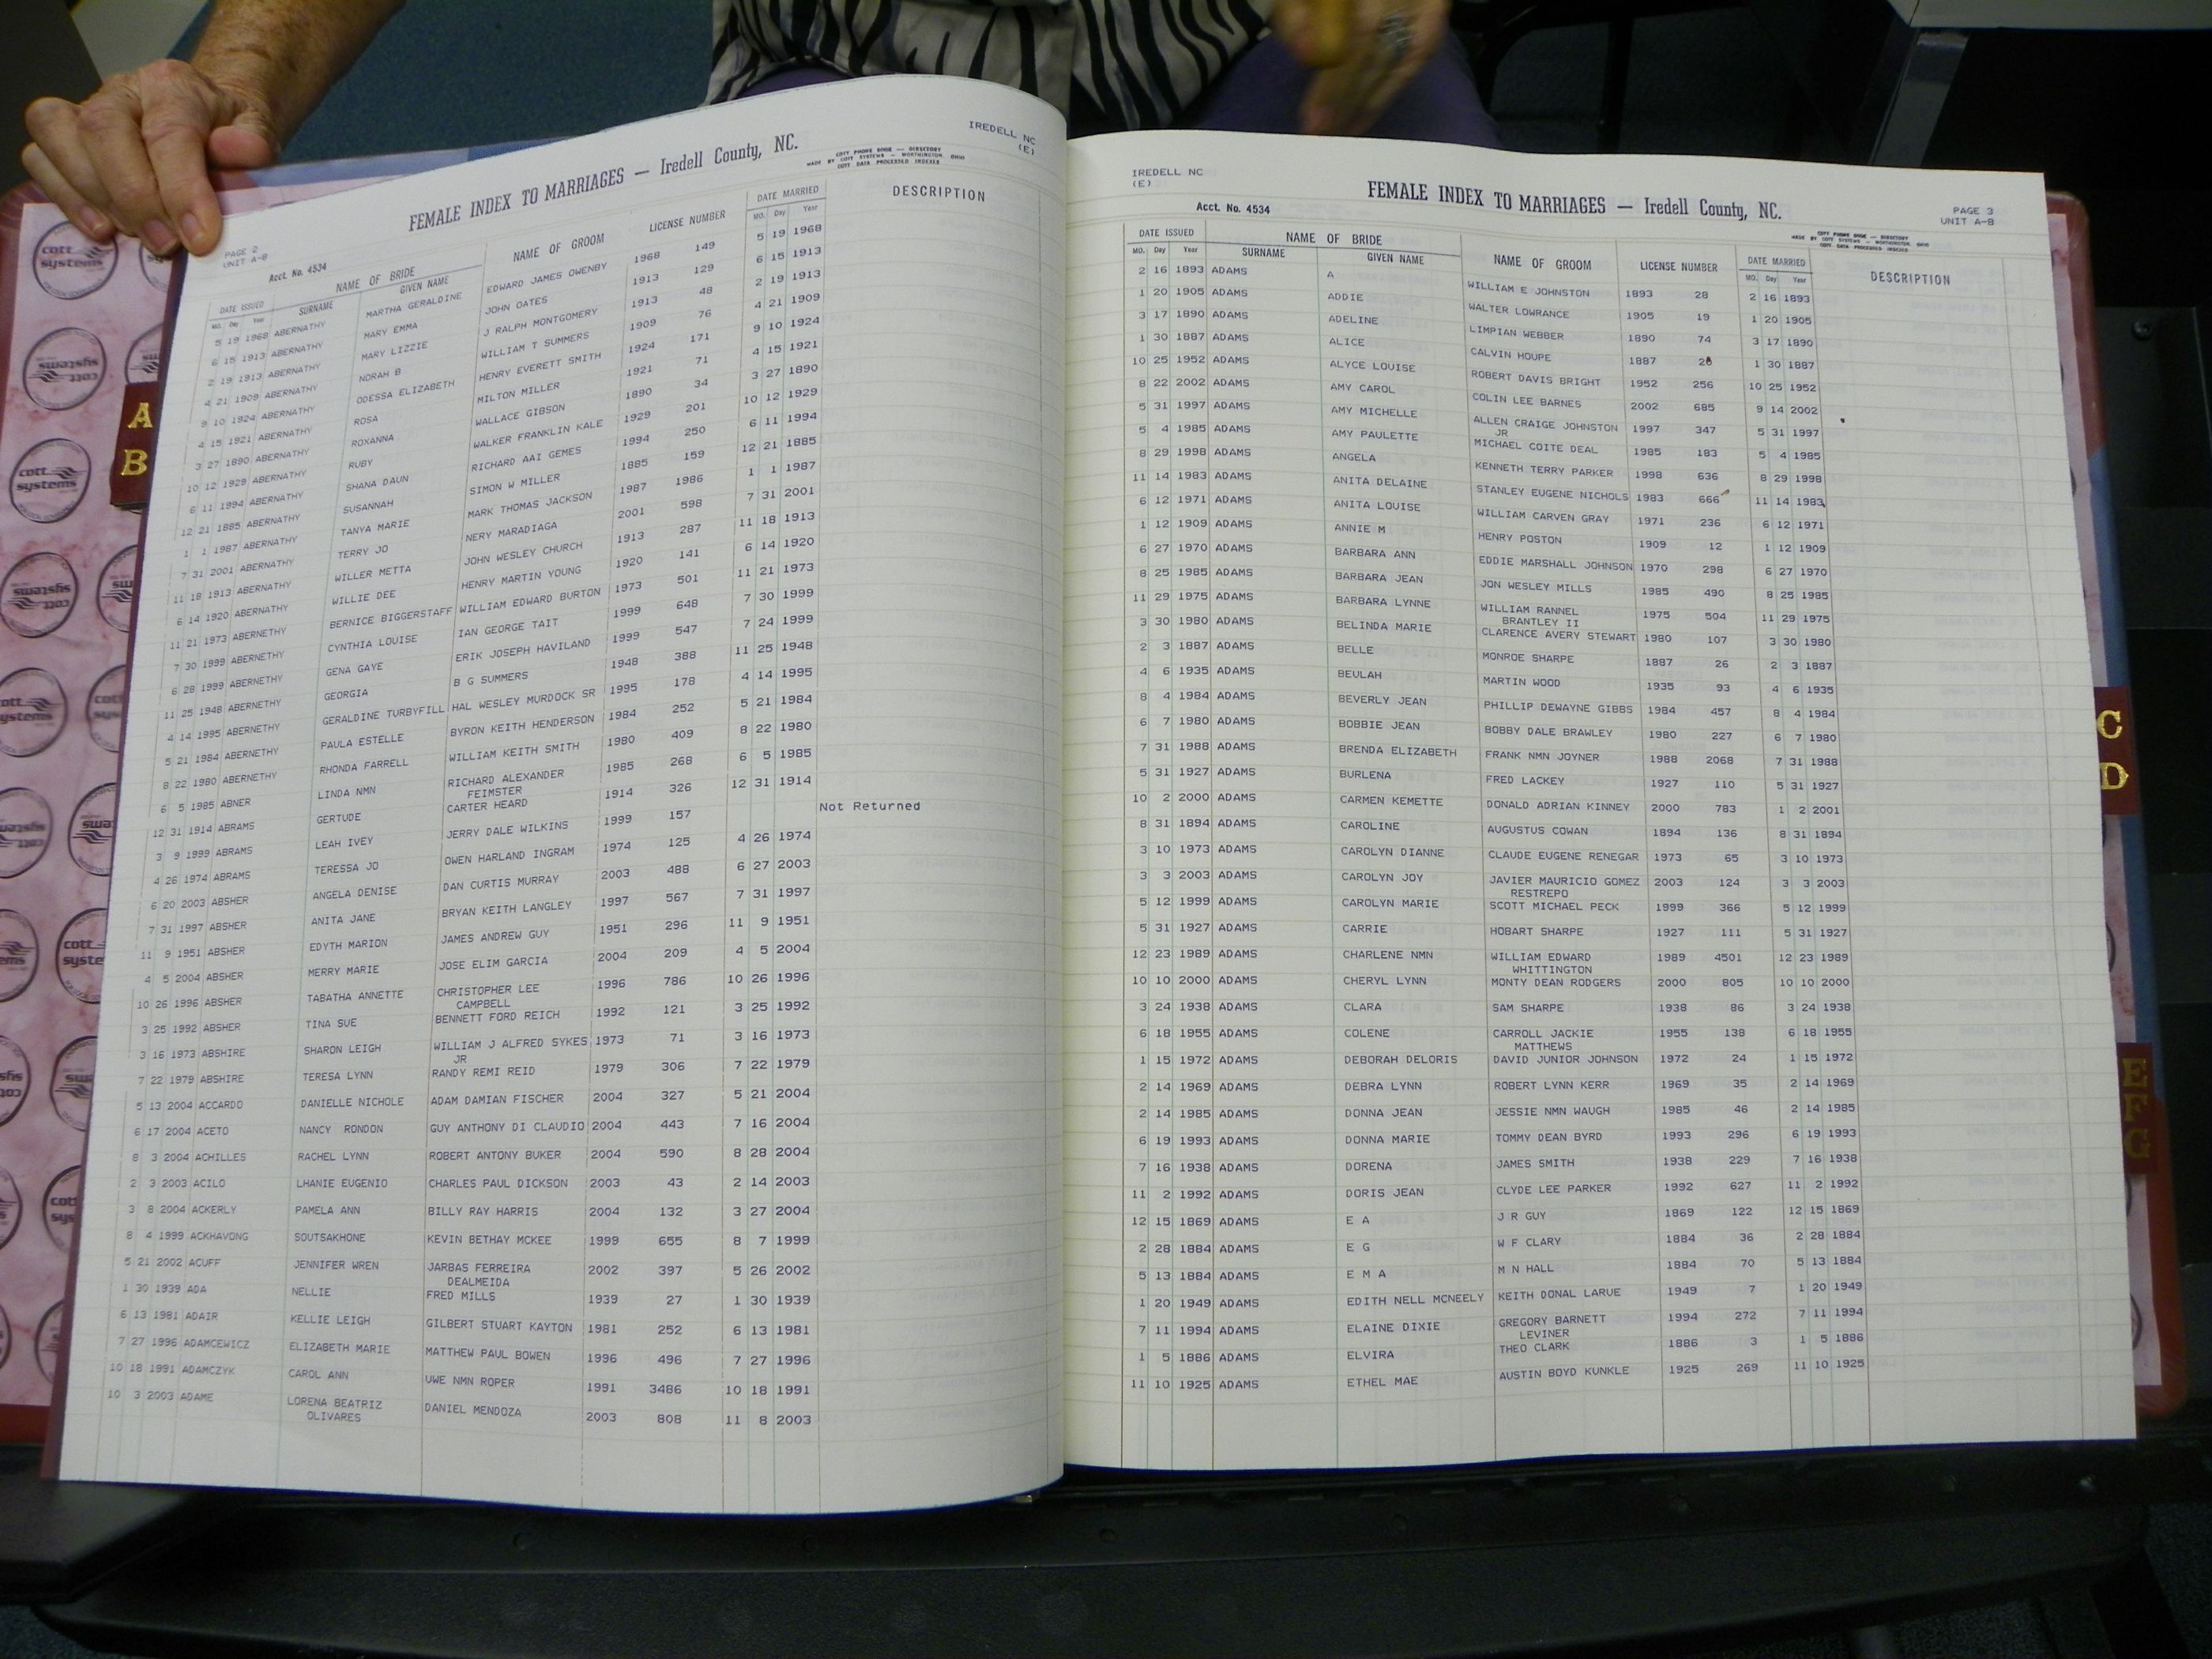 IREDELL NC
(E)
PAGE 2
UNIT A-B
FEMALE INDEX TO MARRIAGES — Iredell County, NC.
COTT PHONE BOOK — DIRECTORY
MADE BY COTT SYSTEMS — WORTHINGTON, OHIO
COTT DATA PROCESSED INDEXES
Acct. No. 4534
DATE ISSUED NAME OF BRIDE NAME OF GROOM LICENSE NUMBER DATE MARRIED DESCRIPTION
MO. Day Year SURNAME GIVEN NAME MO. Day Year
5 19 1968 ABERNATHY MARTHA GERALDINE EDWARD JAMES OWENBY 1968 149 5 19 1968
6 15 1913 ABERNATHY MARY EMMA JOHN OATES 1913 129 6 15 1913
2 19 1913 ABERNATHY MARY LIZZIE J RALPH MONTGOMERY 1913 48 2 19 1913
4 21 1909 ABERNATHY NORAH B WILLIAM T SUMMERS 1909 76 4 21 1909
9 10 1924 ABERNATHY ODESSA ELIZABETH HENRY EVERETT SMITH 1924 171 9 10 1924
4 15 1921 ABERNATHY ROSA MILTON MILLER 1921 71 4 15 1921
3 27 1890 ABERNATHY ROXANNA WALLACE GIBSON 1890 34 3 27 1890
10 12 1929 ABERNATHY RUBY WALKER FRANKLIN KALE 1929 201 10 12 1929
6 11 1994 ABERNATHY SHANA DAUN RICHARD AAI GEMES 1994 250 6 11 1994
12 21 1885 ABERNATHY SUSANNAH SIMON W MILLER 1885 159 12 21 1885
1 1 1987 ABERNATHY TANYA MARIE MARK THOMAS JACKSON 1987 1986 1 1 1987
7 31 2001 ABERNATHY TERRY JO NERY MARADIAGA 2001 598 7 31 2001
11 18 1913 ABERNATHY WILLER METTA JOHN WESLEY CHURCH 1913 287 11 18 1913
6 14 1920 ABERNATHY WILLIE DEE HENRY MARTIN YOUNG 1920 141 6 14 1920
11 21 1973 ABERNETHY BERNICE BIGGERSTAFF WILLIAM EDWARD BURTON 1973 501 11 21 1973
7 30 1999 ABERNETHY CYNTHIA LOUISE IAN GEORGE TAIT 1999 648 7 30 1999
6 28 1999 ABERNETHY GENA GAYE ERIK JOSEPH HAVILAND 1999 547 7 24 1999
11 25 1948 ABERNETHY GEORGIA B G SUMMERS 1948 388 11 25 1948
4 14 1995 ABERNETHY GERALDINE TURBYFILL HAL WESLEY MURDOCK SR 1995 178 4 14 1995
5 21 1984 ABERNETHY PAULA ESTELLE BYRON KEITH HENDERSON 1984 252 5 21 1984
8 22 1980 ABERNETHY RHONDA FARRELL WILLIAM KEITH SMITH 1980 409 8 22 1980
6 5 1985 ABNER LINDA NMN RICHARD ALEXANDER 1985 268 6 5 1985
FEIMSTER
12 31 1914 ABRAMS GERTUDE CARTER HEARD 1914 326 12 31 1914
3 9 1999 ABRAMS LEAH IVEY JERRY DALE WILKINS 1999 157 Not Returned
4 26 1974 ABRAMS TERESSA JO OWEN HARLAND INGRAM 1974 125 4 26 1974
6 20 2003 ABSHER ANGELA DENISE DAN CURTIS MURRAY 2003 488 6 27 2003
7 31 1997 ABSHER ANITA JANE BRYAN KEITH LANGLEY 1997 567 7 31 1997
11 9 1951 ABSHER EDYTH MARION JAMES ANDREW GUY 1951 296 11 9 1951
4 5 2004 ABSHER MERRY MARIE JOSE ELIM GARCIA 2004 209 4 5 2004
10 26 1996 ABSHER TABATHA ANNETTE CHRISTOPHER LEE 1996 786 10 26 1996
CAMPBELL
3 25 1992 ABSHER TINA SUE BENNETT FORD REICH 1992 121 3 25 1992
3 16 1973 ABSHIRE SHARON LEIGH WILLIAM J ALFRED SYKES 1973 71 3 16 1973
JR
7 22 1979 ABSHIRE TERESA LYNN RANDY REMI REID 1979 306 7 22 1979
5 13 2004 ACCARDO DANIELLE NICHOLE ADAM DAMIAN FISCHER 2004 327 5 21 2004
6 17 2004 ACETO NANCY RONDON GUY ANTHONY DI CLAUDIO 2004 443 7 16 2004
8 3 2004 ACHILLES RACHEL LYNN ROBERT ANTONY BUKER 2004 590 8 28 2004
2 3 2003 ACILO LHANIE EUGENIO CHARLES PAUL DICKSON 2003 43 2 14 2003
3 8 2004 ACKERLY PAMELA ANN BILLY RAY HARRIS 2004 132 3 27 2004
8 4 1999 ACKHAVONG SOUTSAKHONE KEVIN BETHAY MCKEE 1999 655 8 7 1999
5 21 2002 ACUFF JENNIFER WREN JARBAS FERREIRA 2002 397 5 26 2002
DEALMEIDA
1 30 1939 ADA NELLIE FRED MILLS 1939 27 1 30 1939
6 13 1981 ADAIR KELLIE LEIGH GILBERT STUART KAYTON 1981 252 6 13 1981
7 27 1996 ADAMCEWICZ ELIZABETH MARIE MATTHEW PAUL BOWEN 1996 496 7 27 1996
10 18 1991 ADAMCZYK CAROL ANN UWE NMN ROPER 1991 3486 10 18 1991
10 3 2003 ADAME LORENA BEATRIZ DANIEL MENDOZA 2003 808 11 8 2003
OLIVARES
IREDELL NC
(E)
FEMALE INDEX TO MARRIAGES — Iredell County, NC.
PAGE 3
UNIT A-B
Acct. No. 4534
COTT PHONE BOOK — DIRECTORY
MADE BY COTT SYSTEMS — WORTHINGTON, OHIO
COTT DATA PROCESSED INDEXES
DATE ISSUED NAME OF BRIDE NAME OF GROOM LICENSE NUMBER DATE MARRIED DESCRIPTION
MO. Day Year SURNAME GIVEN NAME MO. Day Year
2 16 1893 ADAMS A WILLIAM E JOHNSTON 1893 28 2 16 1893
1 20 1905 ADAMS ADDIE WALTER LOWRANCE 1905 19 1 20 1905
3 17 1890 ADAMS ADELINE LIMPIAN WEBBER 1890 74 3 17 1890
1 30 1887 ADAMS ALICE CALVIN HOUPE 1887 1 30 1887
10 25 1952 ADAMS ALYCE LOUISE ROBERT DAVIS BRIGHT 1952 256 10 25 1952
8 22 2002 ADAMS AMY CAROL COLIN LEE BARNES 2002 685 9 14 2002
5 31 1997 ADAMS AMY MICHELLE ALLEN CRAIGE JOHNSTON 1997 347 5 31 1997
JR
5 4 1985 ADAMS AMY PAULETTE MICHAEL COITE DEAL 1985 183 5 4 1985
8 29 1998 ADAMS ANGELA KENNETH TERRY PARKER 1998 636 8 29 1998
11 14 1983 ADAMS ANITA DELAINE STANLEY EUGENE NICHOLS 1983 666 11 14 1983
6 12 1971 ADAMS ANITA LOUISE WILLIAM CARVEN GRAY 1971 236 6 12 1971
1 12 1909 ADAMS ANNIE M HENRY POSTON 1909 12 1 12 1909
6 27 1970 ADAMS BARBARA ANN EDDIE MARSHALL JOHNSON 1970 298 6 27 1970
8 25 1985 ADAMS BARBARA JEAN JON WESLEY MILLS 1985 490 8 25 1985
11 29 1975 ADAMS BARBARA LYNNE WILLIAM RANNEL 1975 504 11 29 1975
BRANTLEY II
3 30 1980 ADAMS BELINDA MARIE CLARENCE AVERY STEWART 1980 107 3 30 1980
2 3 1887 ADAMS BELLE MONROE SHARPE 1887 26 2 3 1887
4 6 1935 ADAMS BEULAH MARTIN WOOD 1935 93 4 6 1935
8 4 1984 ADAMS BEVERLY JEAN PHILLIP DEWAYNE GIBBS 1984 457 8 4 1984
6 7 1980 ADAMS BOBBIE JEAN BOBBY DALE BRAWLEY 1980 227 6 7 1980
7 31 1988 ADAMS BRENDA ELIZABETH FRANK NMN JOYNER 1988 2068 7 31 1988
5 31 1927 ADAMS BURLENA FRED LACKEY 1927 110 5 31 1927
10 2 2000 ADAMS CARMEN KEMETTE DONALD ADRIAN KINNEY 2000 783 1 2 2001
8 31 1894 ADAMS CAROLINE AUGUSTUS COWAN 1894 136 8 31 1894
3 10 1973 ADAMS CAROLYN DIANNE CLAUDE EUGENE RENEGAR 1973 65 3 10 1973
3 3 2003 ADAMS CAROLYN JOY JAVIER MAURICIO GOMEZ 2003 124 3 3 2003
RESTREPO
5 12 1999 ADAMS CAROLYN MARIE SCOTT MICHAEL PECK 1999 366 5 12 1999
5 31 1927 ADAMS CARRIE HOBART SHARPE 1927 111 5 31 1927
12 23 1989 ADAMS CHARLENE NMN WILLIAM EDWARD 1989 4501 12 23 1989
WHITTINGTON
10 10 2000 ADAMS CHERYL LYNN MONTY DEAN RODGERS 2000 805 10 10 2000
3 24 1938 ADAMS CLARA SAM SHARPE 1938 86 3 24 1938
6 18 1955 ADAMS COLENE CARROLL JACKIE 1955 138 6 18 1955
MATTHEWS
1 15 1972 ADAMS DEBORAH DELORIS DAVID JUNIOR JOHNSON 1972 24 1 15 1972
2 14 1969 ADAMS DEBRA LYNN ROBERT LYNN KERR 1969 35 2 14 1969
2 14 1985 ADAMS DONNA JEAN JESSIE NMN WAUGH 1985 46 2 14 1985
6 19 1993 ADAMS DONNA MARIE TOMMY DEAN BYRD 1993 296 6 19 1993
7 16 1938 ADAMS DORENA JAMES SMITH 1938 229 7 16 1938
11 2 1992 ADAMS DORIS JEAN CLYDE LEE PARKER 1992 627 11 2 1992
12 15 1869 ADAMS E A J R GUY 1869 122 12 15 1869
2 28 1884 ADAMS E G W F CLARY 1884 36 2 28 1884
5 13 1884 ADAMS E M A M N HALL 1884 70 5 13 1884
1 20 1949 ADAMS EDITH NELL MCNEELY KEITH DONAL LARUE 1949 7 1 20 1949
7 11 1994 ADAMS ELAINE DIXIE GREGORY BARNETT 1994 272 7 11 1994
LEVINER
1 5 1886 ADAMS ELVIRA THEO CLARK 1886 3 1 5 1886
11 10 1925 ADAMS ETHEL MAE AUSTIN BOYD KUNKLE 1925 269 11 10 1925
A
B
C
D
E
F
G
cott
systems